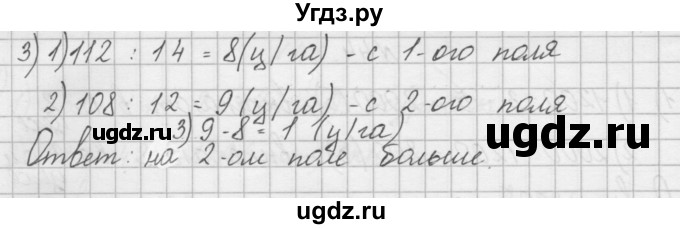 Угдз.ру
3) 1) 112 : 14 = 8 (ц/га) - с 1-ого поля
2) 108 : 12 = 9 (ц/га) - с 2-ого поля
ugdz.ru ugdz.ru
3) 9-8 = 1 (ц/га)
Ответ: на 2-ом поле больше.
ugdz.ru